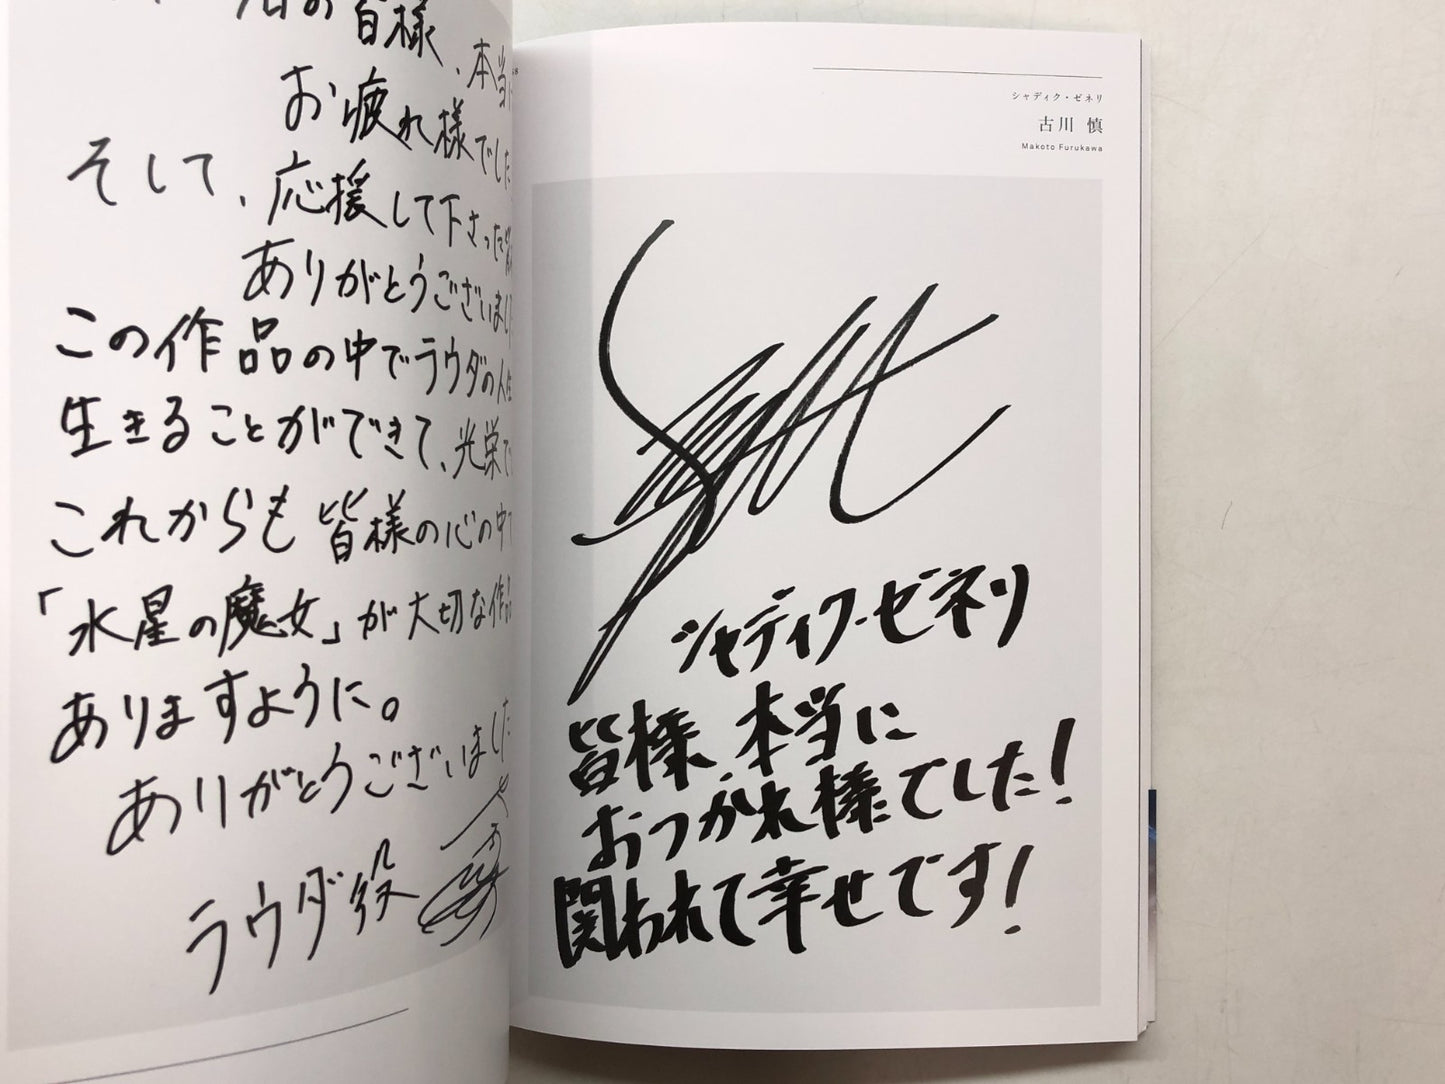 の皆様、本当に
お疲れ様でした
そして、応援して下さった皆
ありがとうございまし
この作品の中でラウダの人生
生きることができて、光栄で
これからも皆様の心の中で
「水星の魔女」が大切な作品
ありますように。
ありがとうございました
ラウダ役
シャディク・ゼネリ
古川 慎
Makoto Furukawa
シャディク・ゼネリ
皆様、本当に
おつかれ様でした!
関われて幸せです!